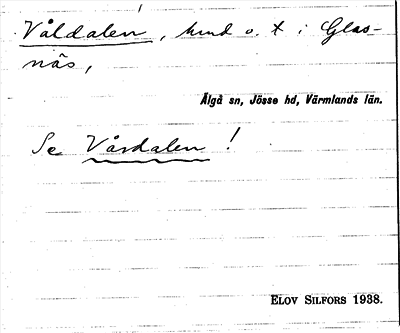 Våldalen, hmd o. t i Glas-
näs,
Älgå sn, Jösse hd, Värmlands län.
Se Vårdalen!
ELOV SILFORS 1938.